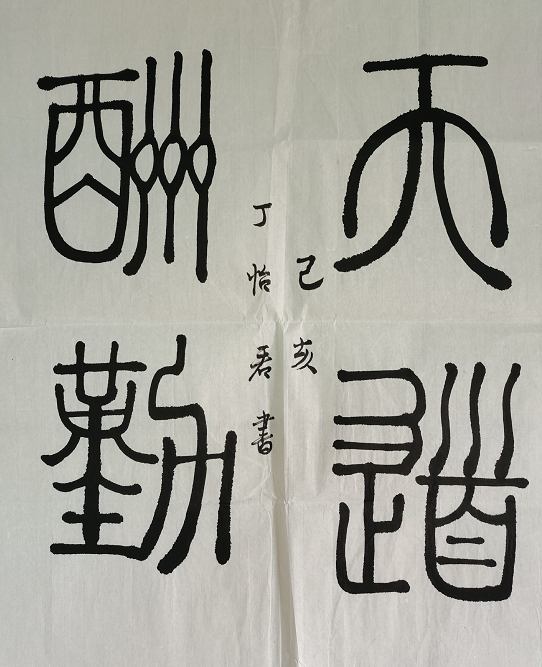 天道
酬勤
己亥
丁怡君書